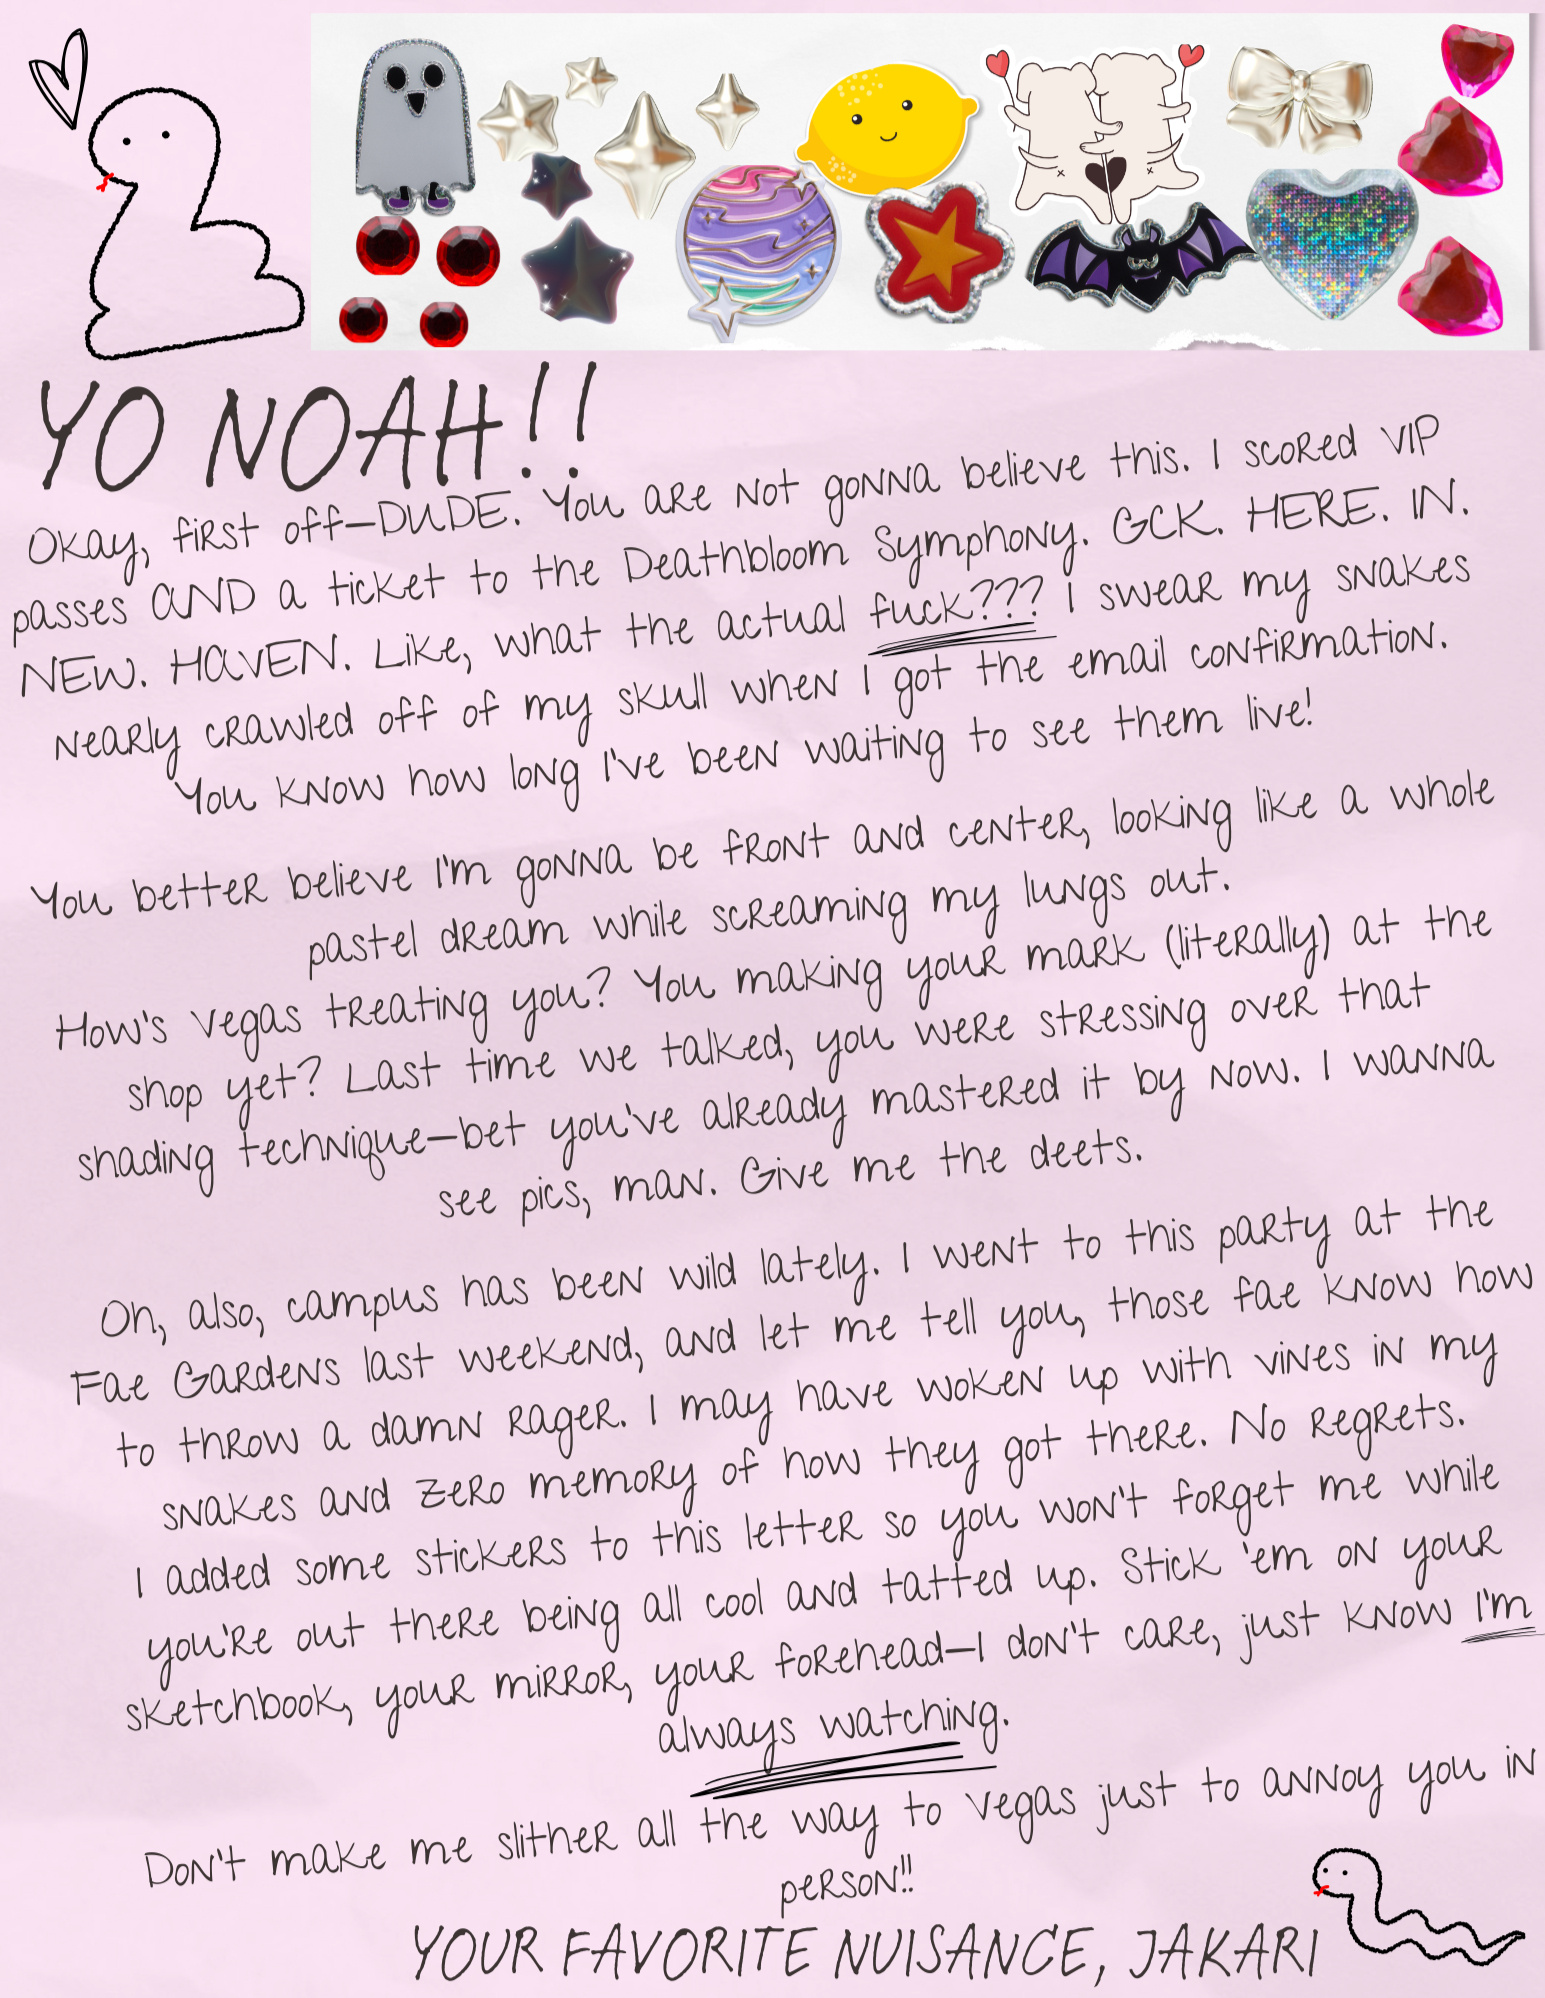 YO NOAH!!
Okay, first off—DUDE. You are not gonna believe this. I scored VIP
passes AND a ticket to the Deathbloom Symphony. GCK. HERE. IN.
NEW. HAVEN. Like, what the actual fuck??? I swear my snakes
nearly crawled off of my skull when I got the email confirmation.
You know how long I've been waiting to see them live!
You better believe I'm gonna be front and center, looking like a whole
pastel dream while screaming my lungs out.
How's Vegas treating you? You making your mark (literally) at the
shop yet? Last time we talked, you were stressing over that
shading technique—bet you've already mastered it by now. I wanna
see pics, man. Give me the deets.
Oh, also, campus has been wild lately. I went to this party at the
Fae Gardens last weekend, and let me tell you, those fae know how
to throw a damn rager. I may have woken up with vines in my
snakes and zero memory of how they got there. No regrets.
I added some stickers to this letter so you won't forget me while
you're out there being all cool and tatted up. Stick 'em on your
sketchbook, your mirror, your forehead—I don't care, just know I'm
always watching.
Don't make me slither all the way to Vegas just to annoy you in
person!!
YOUR FAVORITE NUISANCE, JAKARI